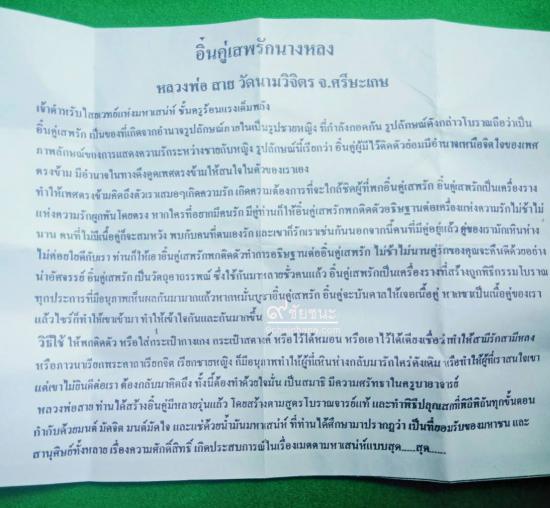 อิ้นคู่เสพรักนางหลง
หลวงพ่อ สาย วัดนามวิจิตร จ.ศรีษะเกษ
เจ้าตำหรับไสยเวทย์แห่งมหาเสน่ห์ ชั้นครูร้อนแรงเต็มพลัง
อิ้นคู่เสพรัก เป็นของที่เกิดจากอำนาจรูปลักษณ์ภายในเป็นรูปชายหญิง ที่กำลังกอดกัน รูปลักษณ์ดังกล่าวโบราณถือว่าเป็น
ภาพลักษณ์ของการแสดงความรักระหว่างชายกับหญิง รูปลักษณ์นี้เรียกว่า อิ้นคู่ผู้มีไว้ติดตัวย่อมมีอำนาจเหนือจิตใจของเพศ
ตรงข้าม มีอำนาจในทางดึงดูดเพศตรงข้ามให้สนใจในตัวของเราเอง
ทำให้เพศตรงข้ามคิดถึงตัวเราเสมอๆเกิดความรัก เกิดความต้องการที่จะใกล้ชิดผู้ที่พกอิ้นคู่เสพรัก อิ้นคู่เสพรักเป็นเครื่องราง
แห่งความรักผูกพันโดยตรง หากใครที่อยากมีคนรัก มีคู่ท่านก็ให้อิ้นคู่เสพรักพกติดตัวอธิษฐานต่อเครื่องแห่งความรักไม่ช้าไม่
นาน คนที่ไม่มีเนื้อคู่ก็จะสมหวัง พบกับคนที่ตนเองรัก และเขาก็รักเราเช่นกันนอกจากนี้คนที่มีคู่อยู่แล้ว คู่ของเรามักเหินห่าง
ไม่ค่อยใยดีกับเรา ท่านก็ให้เอาอิ้นคู่เสพรักพกติดตัวทำการอธิษฐานต่ออิ้นคู่เสพรัก ไม่ช้าไม่นานคู่รักของคุณจะคืนดีด้วยอย่าง
น่าอัศจรรย์ อิ้นคู่เสพรัก เป็นวัตถุอาถรรพณ์ ซึ่งใช้กันมาหลายชั่วคนแล้ว อิ้นคู่เสพรักเป็นเครื่องรางที่สร้างถูกพิธีกรรมโบราณ
ทุกประการที่มีอนุภาพเห็นผลกันมามากแล้วหากหมั่นบูชาอิ้นคู่เสพรัก อิ้นคู่จะบันดาลให้เจอเนื้อคู่ หากเขาเป็นเนื้อคู่ของเรา
แล้วไซร้ก็ทำให้เขาเข้ามา ทำให้เข้าใจกันและกันมากขึ้น
วิธีใช้ ให้พกติดตัว หรือใส่กระเป๋ากางเกง กระเป๋าสตางค์ หรือไว้ใต้หมอน หรือเอาไว้ใต้เตียงเชื่อว่าทำให้สามีรักสามีหลง
หรือภาวนาเรียกพระคาถาเรียกจิต เรียกชายหญิง ก็มีอนุภาพทำให้ผู้ที่เหินห่างกลับมารักใคร่ดังเดิม หรือทำให้ผู้ที่เราสนใจเขา
แต่เขาไม่ยินดีต่อเรา ต้องกลับมาคิดถึง ทั้งนี้ต้องทำด้วยใจมั่น เป็นสมาธิ มีความศรัทธาในครูบาอาจารย์
หลวงพ่อสาย ท่านได้สร้างอิ้นคู่มีหลายรุ่นแล้ว โดยสร้างตามสูตรโบราณจารย์แท้ และทำพิธีปลุกเสกที่พิถีพิถันทุกขั้นตอน
กำกับด้วยมนต์ มัดจิต มนต์มัดใจ และแช่ด้วยน้ำมันมหาเสน่ห์ ที่ท่านได้ศึกษามาปรากฏว่า เป็นที่ยอมรับของมหาชน และ
สานุศิษย์ทั้งหลาย เรื่องความศักดิ์สิทธิ์ เกิดประสบการณ์ในเรื่องเมตตามหาเสน่ห์แบบสุด.....สุด......
๙ชัยชนะ